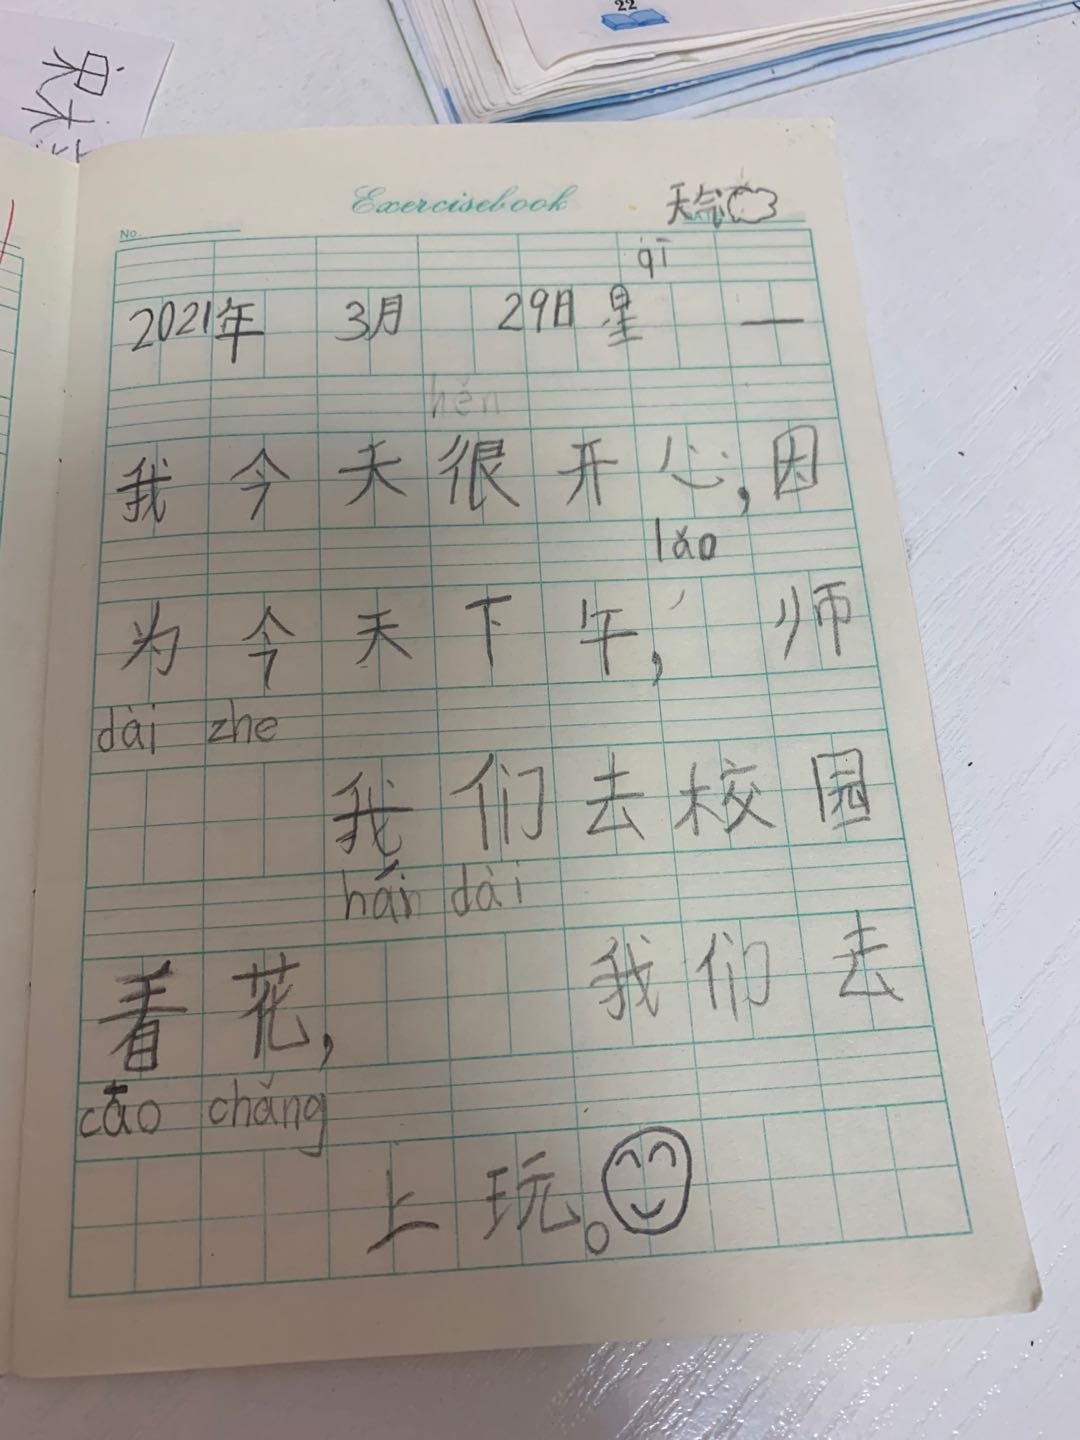 22
宋木
Exercisebook
天气
No.
qī
2021年 3月 29日 星 一
hěn
我今天很开心,因
lǎo
为今天下午, 师
dài zhe
我们去校园
hái dài
看花, 我们去
cāo chǎng
上玩。